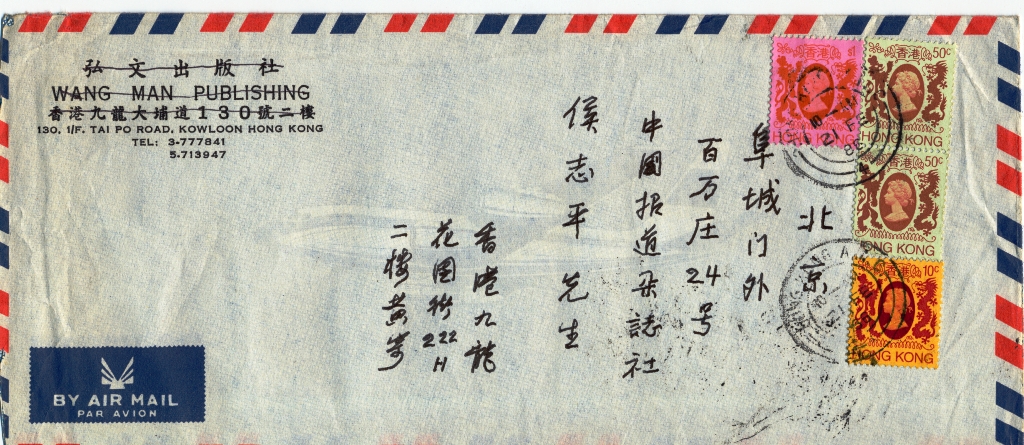 弘文出版社
WANG MAN PUBLISHING
香港九龍大埔道130號二樓
130, 1/F. TAI PO ROAD, KOWLOON HONG KONG
TEL: 3-777841
5-713947
香港 $1
HONG KONG
香港 50c
HONG KONG
香港 50c
HONG KONG
香港 10c
HONG KONG
21 FE
86
北京
阜城门外
百万庄24号
中國报道杂誌社
侯志平先生
香港九龍
花园街222H
二楼黄
BY AIR MAIL
PAR AVION